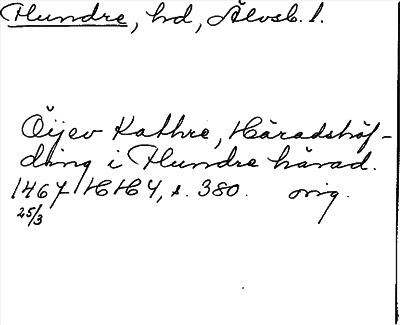 Hundre, hd, Älvsb. l.
Öijev Kathre, Häradshöf-
ding i Hundre härad.
1467 HH 4, s. 380. orig.
25/3